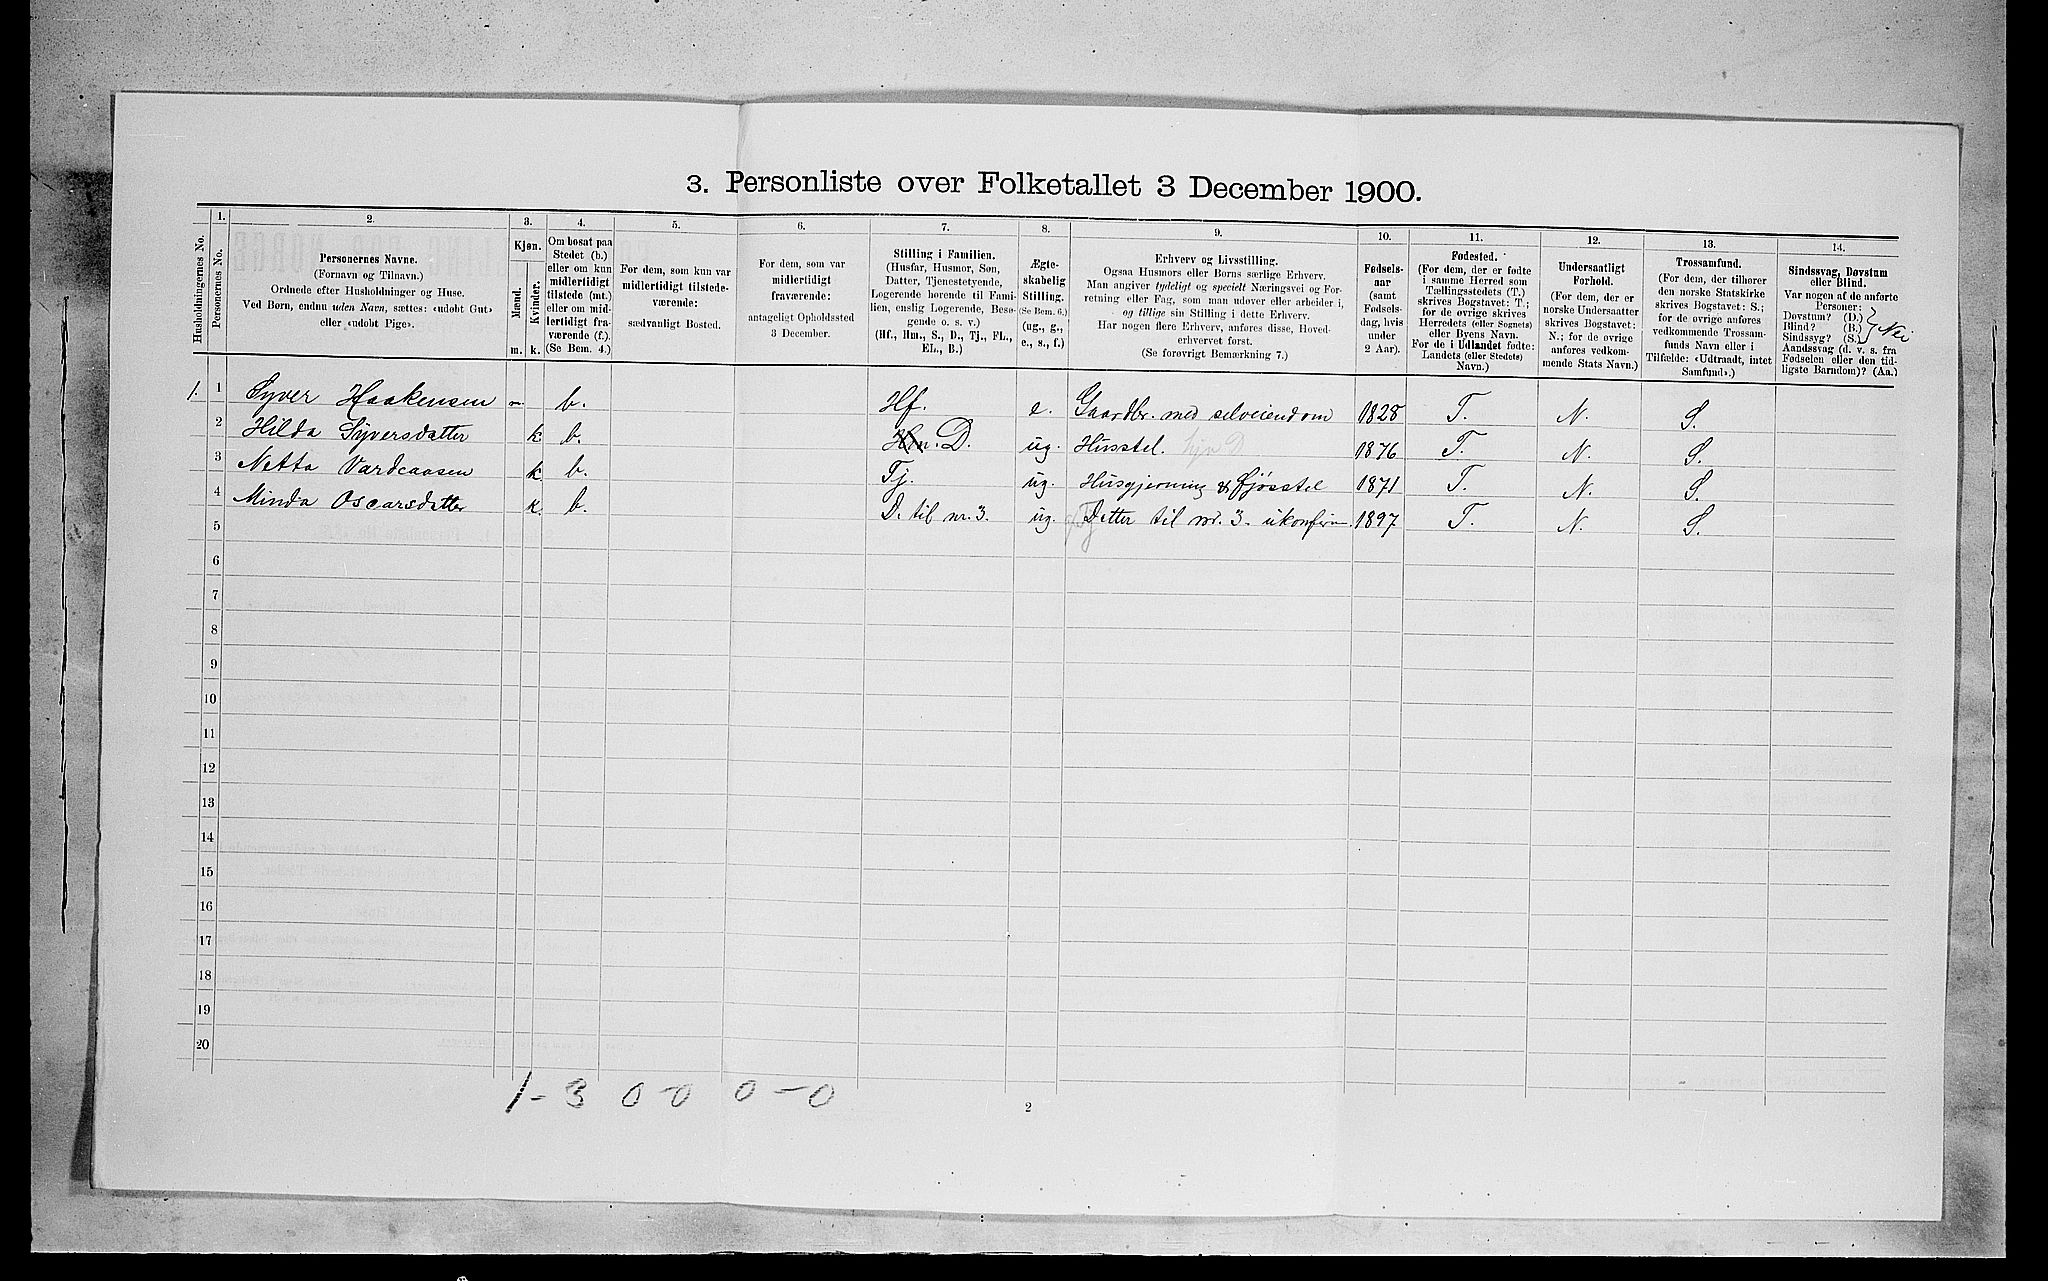 3. Personliste over Folketallet 3 December 1900.
1. 2. 3. 4. 5. 6. 7. 8. 9. 10. 11. 12. 13. 14.
Husholdningernes No.
Personernes No.
Personernes Navne.
(Fornavn og Tilnavn.)
Ordnede efter Husholdninger og Huse.
Ved Børn, endnu uden Navn, sættes: «udøbt Gut»
eller «udøbt Pige».
Kjøn.
Mænd.
Kvinder.
m. k.
Om bosat paa
Stedet (b.)
eller om kun
midlertidigt
tilstede (mt.)
eller om mid-
lertidigt fra-
værende (f.).
(Se Bem. 4.)
For dem, som kun var
midlertidigt tilstede-
værende:
sædvanligt Bosted.
For dem, som var
midlertidigt
fraværende:
antageligt Opholdssted
3 December.
Stilling i Familien.
(Husfar, Husmor, Søn,
Datter, Tjenestetyende,
Logerende hørende til Fami-
lien, enslig Logerende, Besø-
gende o. s. v.)
(Hf., Hm., S., D., Tj., FL.,
EL., B.)
Ægte-
skabelig
Stilling.
(Se Bem. 6.)
(ug., g.,
e., s., f.)
Erhverv og Livsstilling.
Ogsaa Husmors eller Børns særlige Erhverv.
Man angiver tydeligt og specielt Næringsvei og For-
retning eller Fag, som man udøver eller arbeider i,
og tillige sin Stilling i dette Erhverv.
Har nogen flere Erhverv, anføres disse, Hoved-
erhvervet først.
(Se forøvrigt Bemærkning 7.)
Fødsels-
aar
(samt
Fødsels-
dag, hvis
under
2 Aar).
Fødested.
(For dem, der er fødte
i samme Herred som
Tællingsstedets (T.)
skrives Bogstavet: T.;
for de øvrige skrives
Herredets (eller Sognets)
eller Byens Navn.
For de i Udlandet fødte:
Landets (eller Stedets)
Navn.)
Undersaatligt
Forhold.
(For dem, der er
norske Undersaatter
skrives Bogstavet:
N.; for de øvrige
anføres vedkom-
mende Stats Navn.)
Trossamfund.
(For dem, der tilhører
den norske Statskirke
skrives Bogstavet: S.;
for de øvrige anføres
vedkommende Trossam-
funds Navn eller i
Tilfælde: «Udtraadt, intet
Samfund».)
Sindssvag, Døvstum
eller Blind.
Var nogen af de anførte
Personer:
Døvstum? (D.)
Blind? (B.)
Sindssyg? (S.)
Nei
Aandssvag (d. v. s. fra
Fødselen eller den tid-
ligste Barndom)? (Aa.)
1. 1 Syver Haakensen m. b. Hf. e. Gaardbr. med selveiendom 1828 T. N. S.
2 Hilda Syversdatter k b. Hm. D. ug. Husstel. 1876 T. N. S.
3 Netta Vardeaasen k b. Tj. ug. Husgjerning & Fjøsstel 1871 T. N. S.
4 Minda Oscarsdatter k. b. D. til nr. 3. ug. Detter til nr. 3. ukonfirm 1897 T. N. S.
5
6
7
8
9
10
11
12
13
14
15
16
17
18
19
20
1 - 3 0 - 0 0 - 0
2